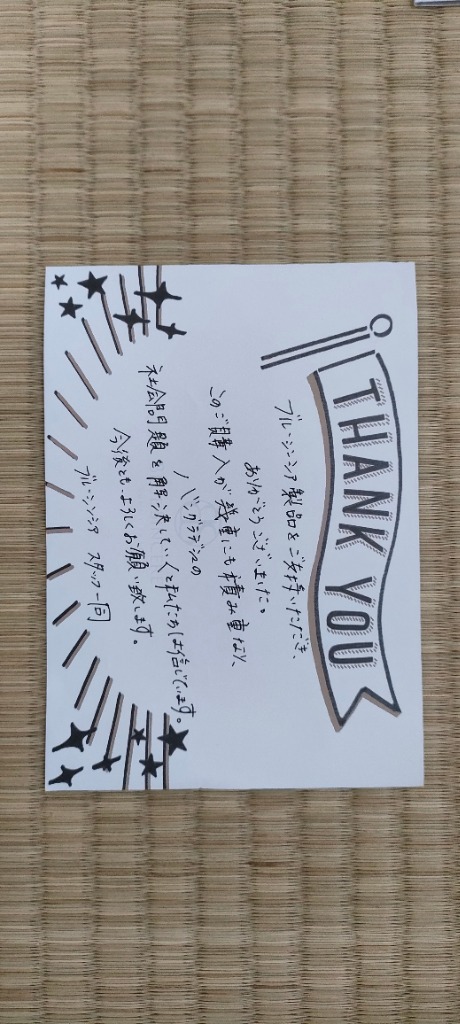 THANK YOU
ブルーシンシア製品をご支持いただき、
ありがとうございました。
このご購入が幾重にも積み重なり、
バングラデシュの
社会問題を解決していくと私たちは信じています。
今後ともよろしくお願い致します。
ブルーシンシア スタッフ一同